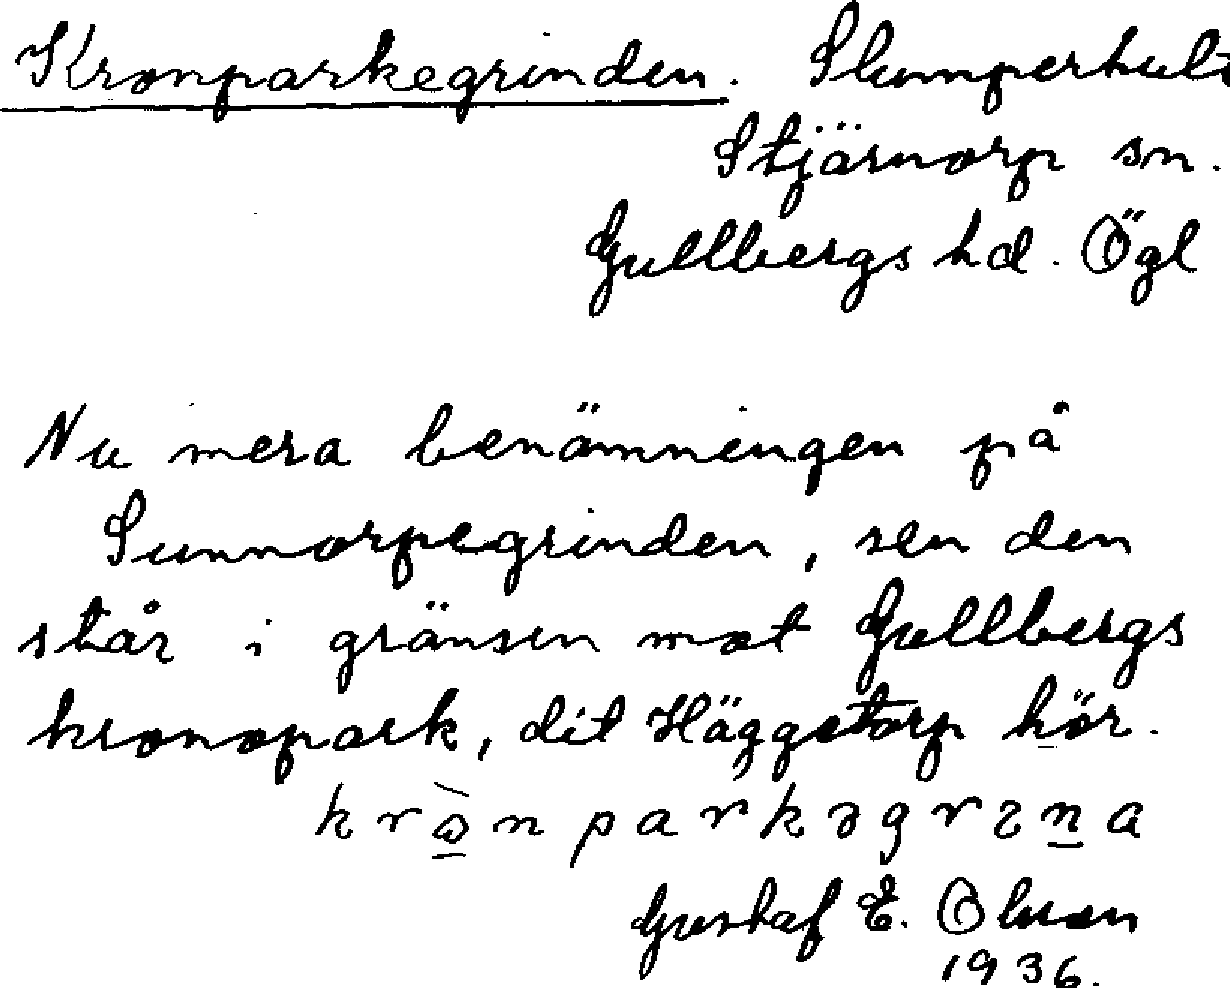 Kronparkegrinden. Slumperhult
Stjärnorp sn.
Gullbergs hd. Ögl
Nu mera benämningen på
Sunnorpegrinden, sen den
står i gränsen mot Gullbergs
kronopark, dit Häggetorp hör.
Gustaf E. Olsson
1936.